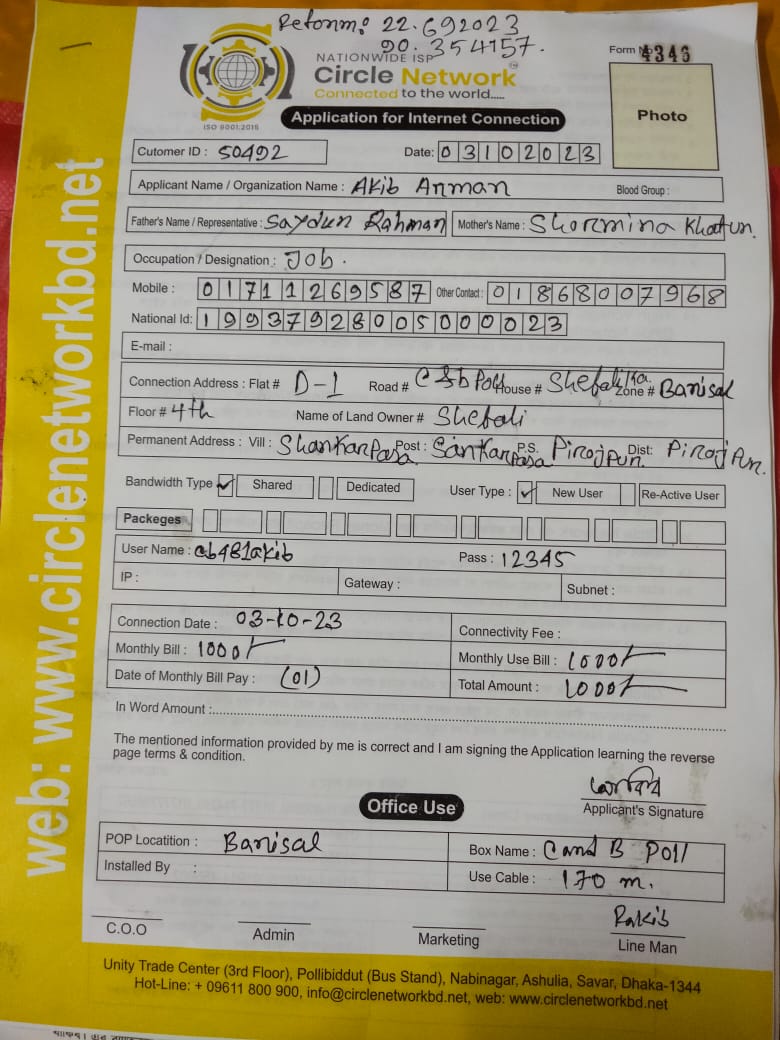 Retonm: 22.692023
90.354157.
NATIONWIDE ISP
Circle Network
Connected to the world.....
ISO 9001:2015
Form No 4346
Photo
Application for Internet Connection
Cutomer ID : 50492
Date: 03102023
Applicant Name / Organization Name : Akib Arman Blood Group :
Father's Name / Representative : Saydur Rahman Mother's Name : Shormina Khatun.
Occupation / Designation : Job.
Mobile : 01711269587 Other Contact : 01868007968
National Id: 19937928005000023
E-mail :
Connection Address : Flat # D-1 Road # C &b Poll House # Shefali Zone # Barisal
Floor # 4th Name of Land Owner # Shefali
Permanent Address : Vill : Shankarpasa Post : Sankarpasa P.S. Pirojpur. Dist: Pirojpur.
Bandwidth Type ✓ Shared Dedicated User Type : ✓ New User Re-Active User
Packeges
User Name : cb481akib Pass : 12345
IP : Gateway : Subnet :
Connection Date : 03-10-23 Connectivity Fee :
Monthly Bill : 1000/- Monthly Use Bill : 1000/-
Date of Monthly Bill Pay : (01) Total Amount : 1000/-
In Word Amount :
The mentioned information provided by me is correct and I am signing the Application learning the reverse
page terms & condition.
Applicant's Signature
Office Use
POP Locatition : Barisal Box Name : C and B Poll
Installed By : Use Cable : 170 m.
Rakib
C.O.O Admin Marketing Line Man
Unity Trade Center (3rd Floor), Pollibiddut (Bus Stand), Nabinagar, Ashulia, Savar, Dhaka-1344
Hot-Line: + 09611 800 900, info@circlenetworkbd.net, web: www.circlenetworkbd.net
web: www.circlenetworkbd.net